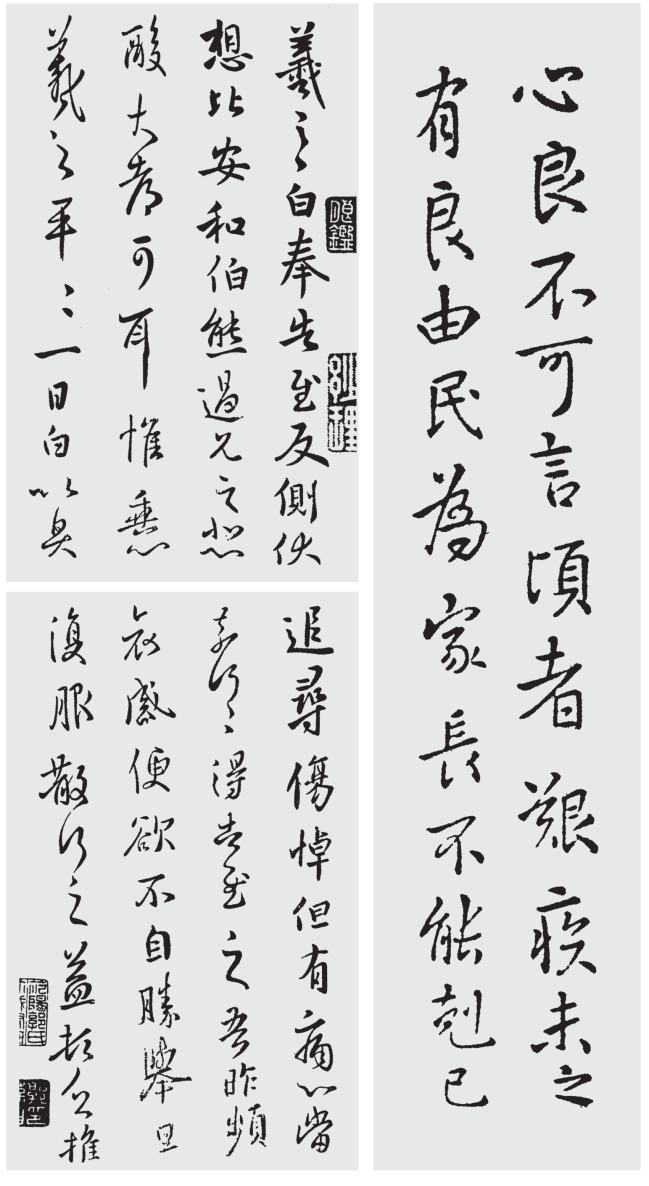 心良不可言頃者艱疾未之
有良由民為家長不能剋己
羲之白奉告慰反側伏
想比安和伯熊過見之悲
酸大都可耳惟
羲之平〻一日白以具
追尋傷悼但有痛心當
奈何〻得告慰之吾昨頻
哀感便欲不自勝舉旦
復服散行之益頓乏推